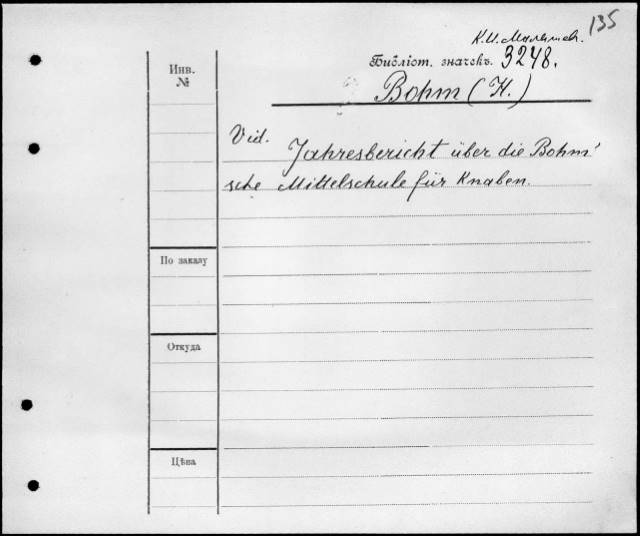 135
К.И.
Бібліот. значекъ. 3248.
Инв.
№
Bohm (H.)
Vid. Jahresbericht über die Bohm'
sche Mittelschule für Knaben.
По заказу
Откуда
Цѣна